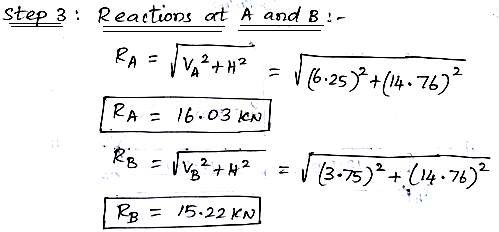 Step 3 : Reactions at A and B :-
R_A = √(V_A² + H²) = √((6.25)² + (14.76)²)
R_A = 16.03 KN
R_B = √(V_B² + H²) = √((3.75)² + (14.76)²)
R_B = 15.22 KN